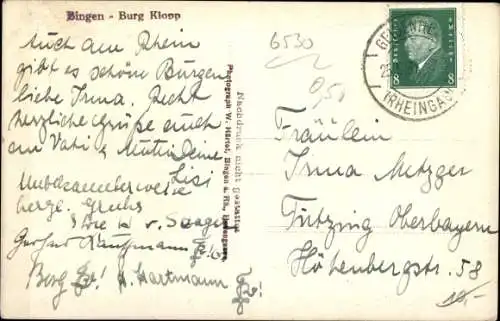 Bingen - Burg Klopp
Auch am Rhein
gibt es schöne Burgen
liebe Irma. Recht
herzliche Grüße auch
an Vati & Mutti Deine
Lisi
Unbekannterweise
herzl. Grüße
Gerhard Kauffmann
Berg H. Hartmann
Photograph W. Härtel, Bingen a. Rh.
Nachdruck nicht gestattet
6530
0,50
DEUTSCHES REICH
8 8
(RHEINGAU)
Fräulein
Irma Metzger
Tutzing Oberbayern
Höhenbergstr. 58
10.-